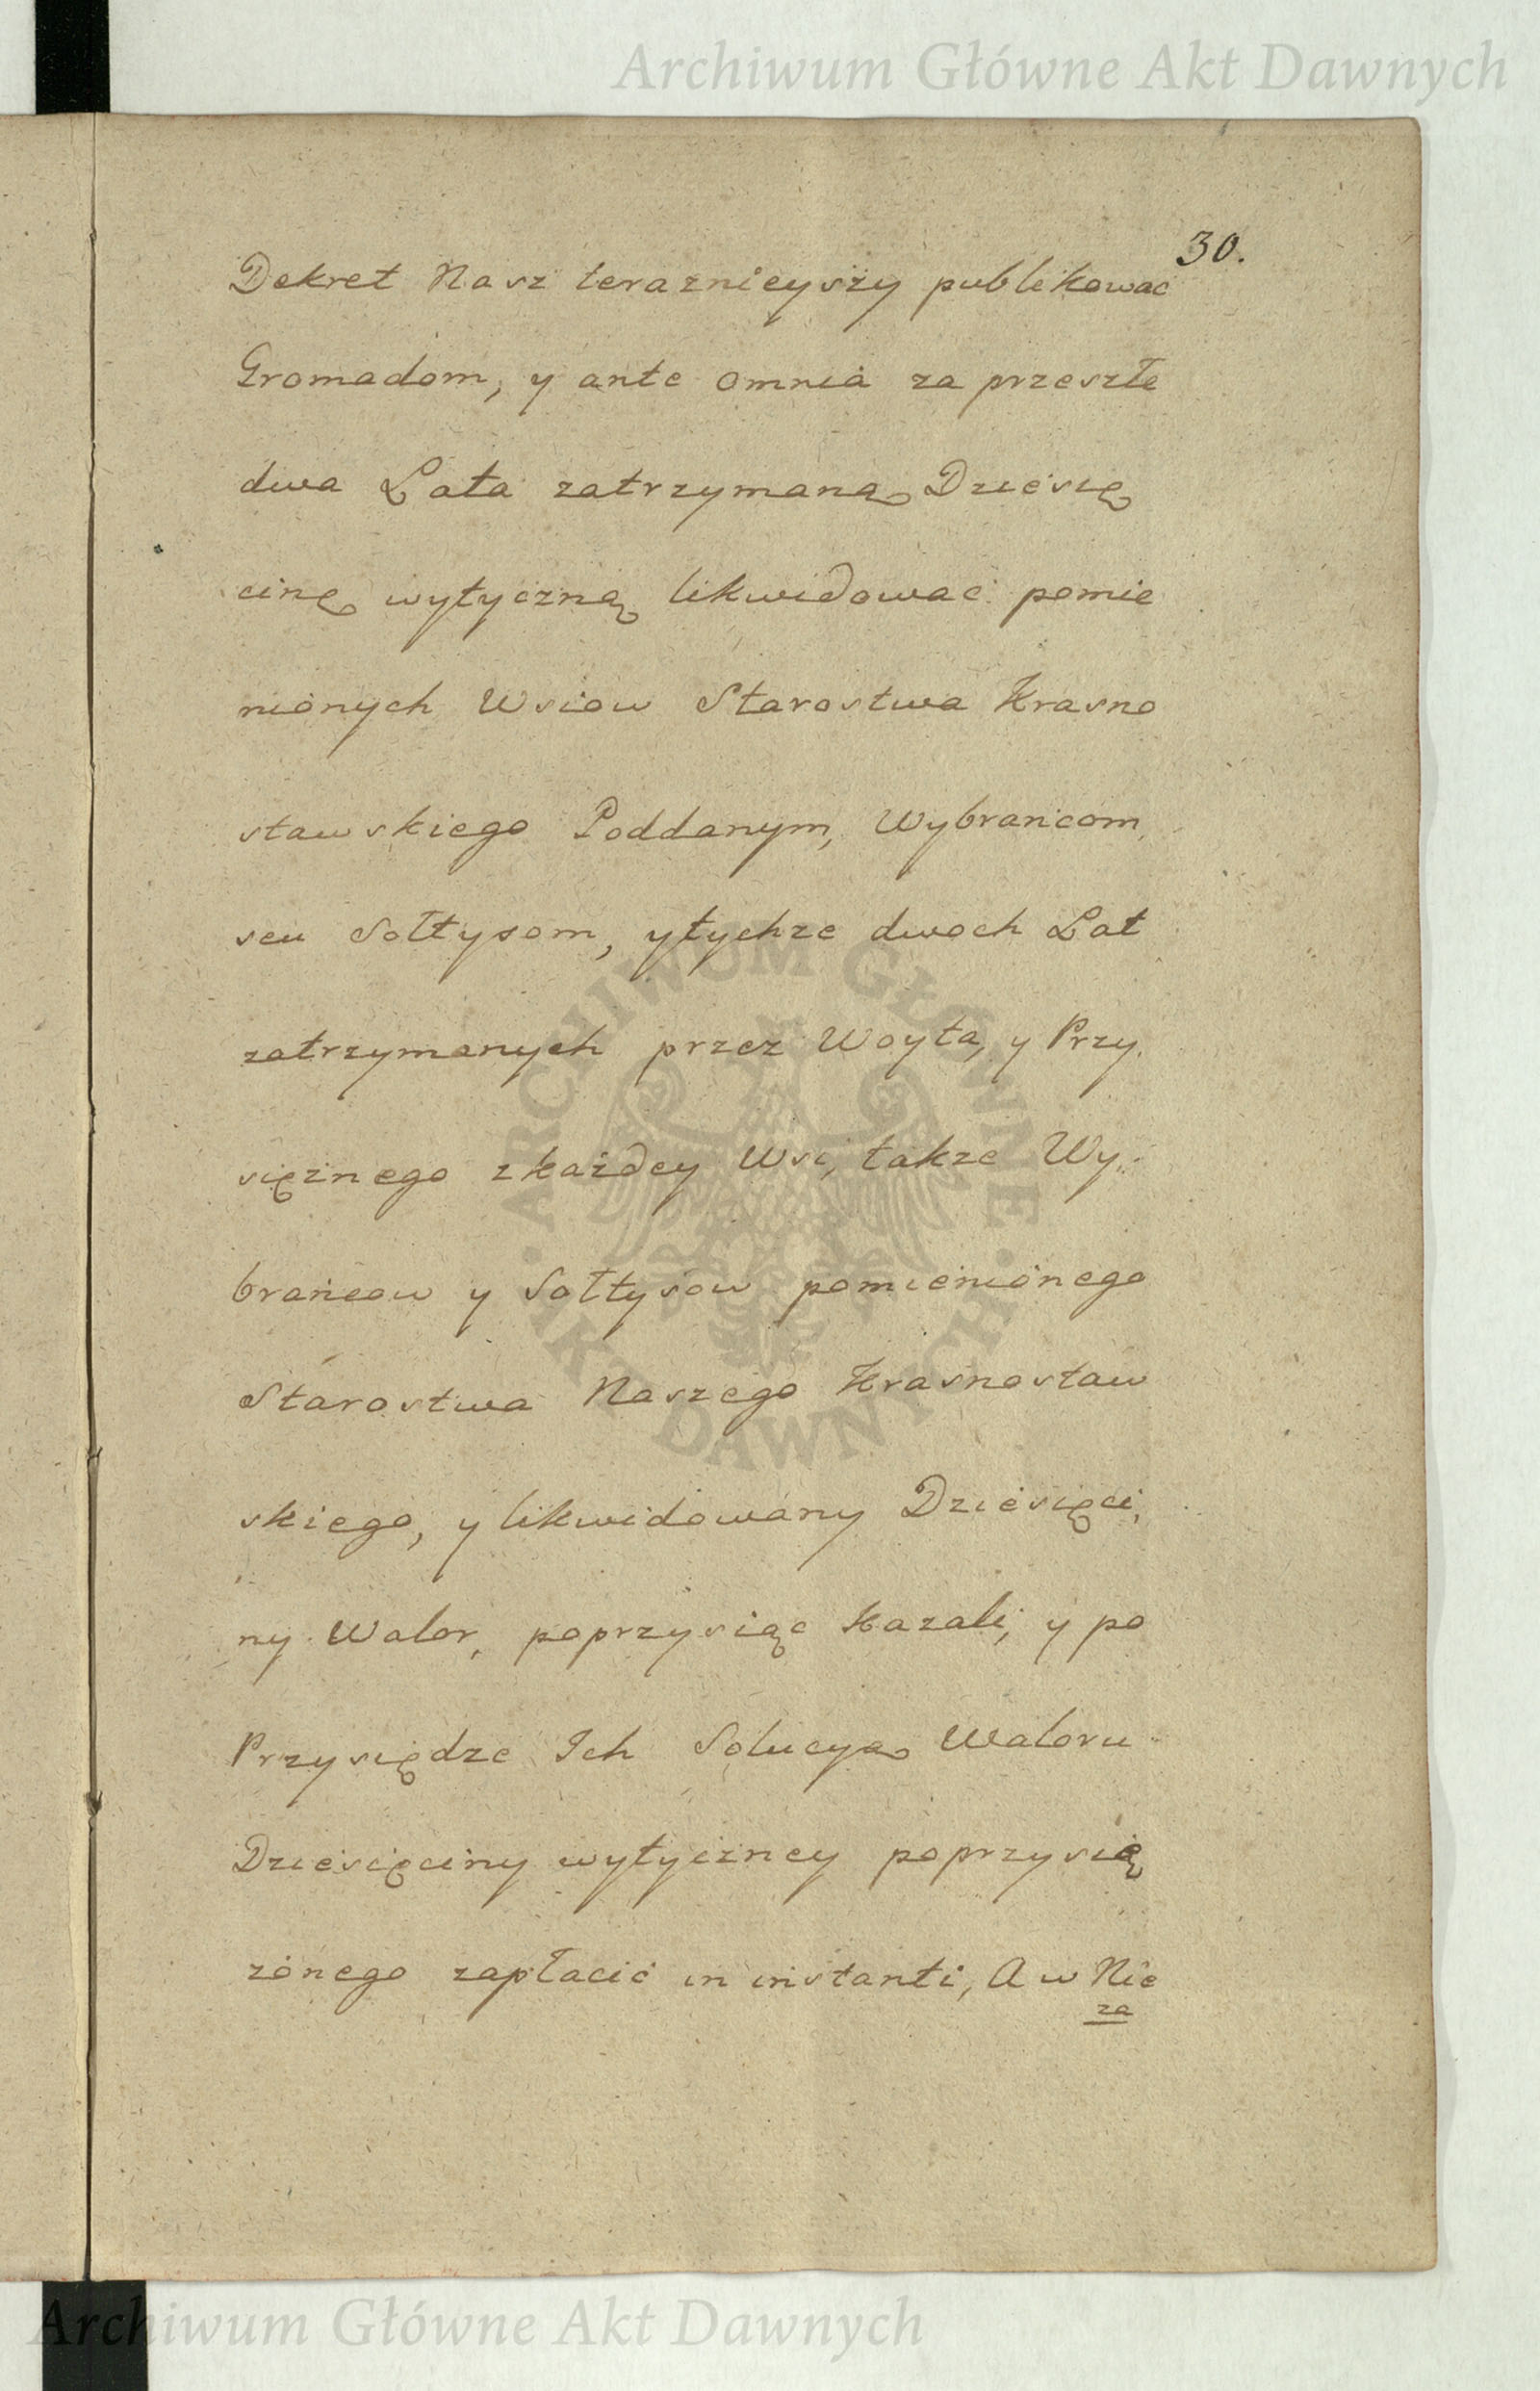 Archiwum Główne Akt Dawnych
30.
Dekret Nasz teraznieyszy publikowac
Gromadom, y ante omnia za przeszłe
dwa Lata zatrzymaną Dziesię
cinę wytyczną likwidowac pomie
nionych Wsiow Starostwa Krasno
stawskiego Poddanym, Wybrańcom,
seu Sołtysom, y tychze dwoch Lat
zatrzymanych przez Woyta, y Przy,
siężnego z każdey Wsi, takze Wy,
brańcow y Sołtysow pomienionego
Starostwa Naszego Krasnostaw
skiego, y likwidowany Dziesięci,
ny Walor, poprzysiąc Kazali, y po
Przysiędze Ich Solucyą Waloru
Dziesięciny wytyczney poprzysię
żonego zapłacić in instanti, A w Nie
za
ARCHIWUM GŁÓWNE · AKT DAWNYCH ·
Archiwum Główne Akt Dawnych